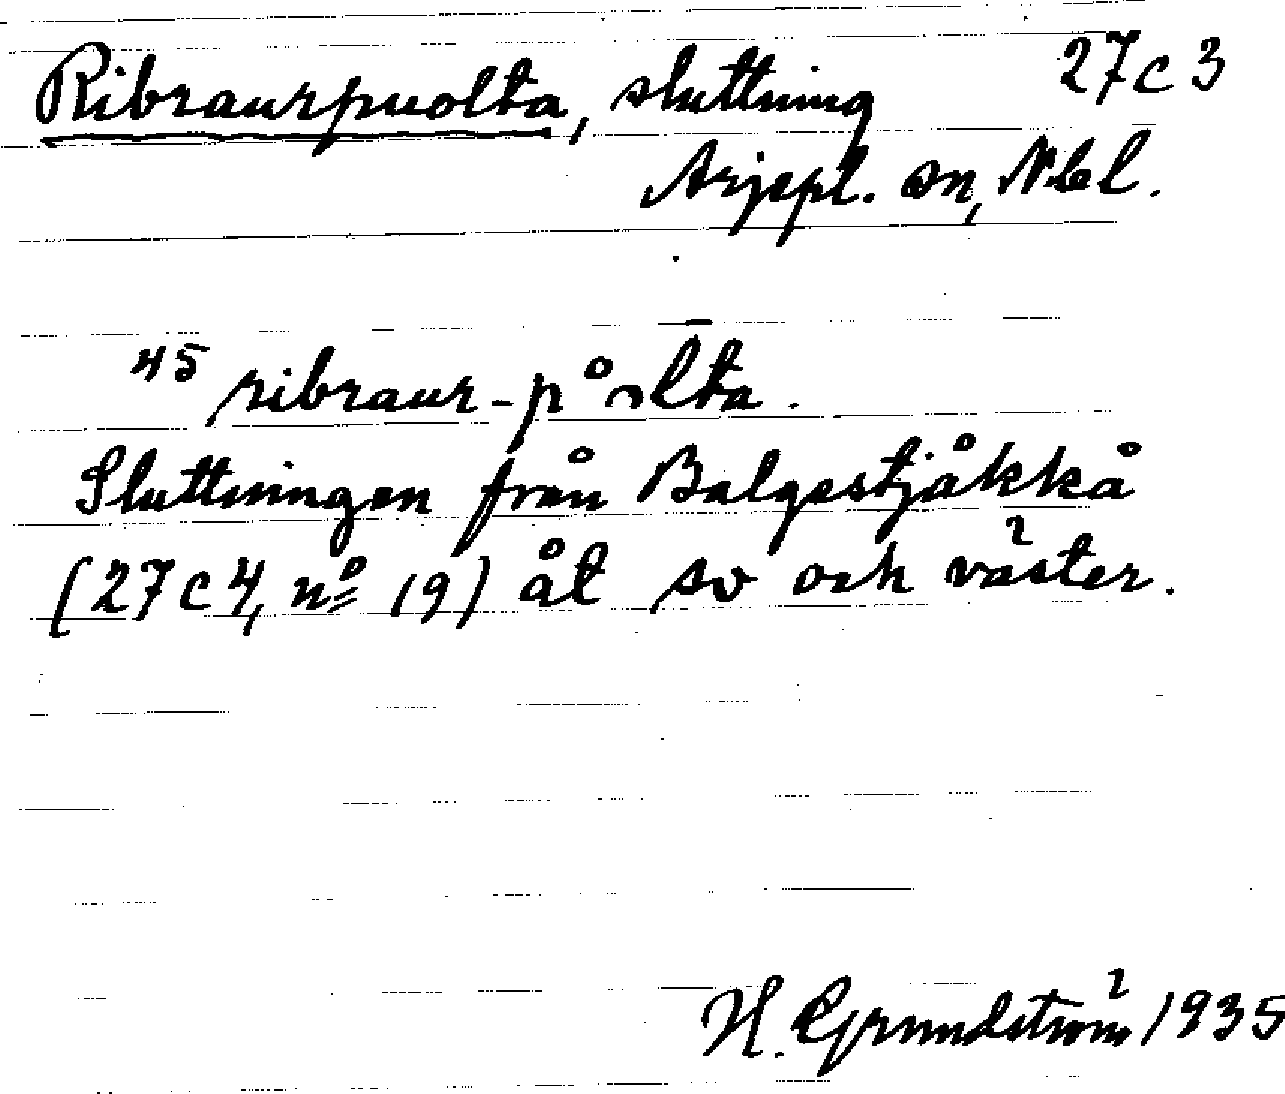 Ribraurpuolta, sluttning 27c3
Arjepl. sn, Nbl.
45 ribraur-på̊lta.
Sluttningen från Balgestjåkkå
(27c4, nº 19) åt sv och väster.
H. Grundström 1935